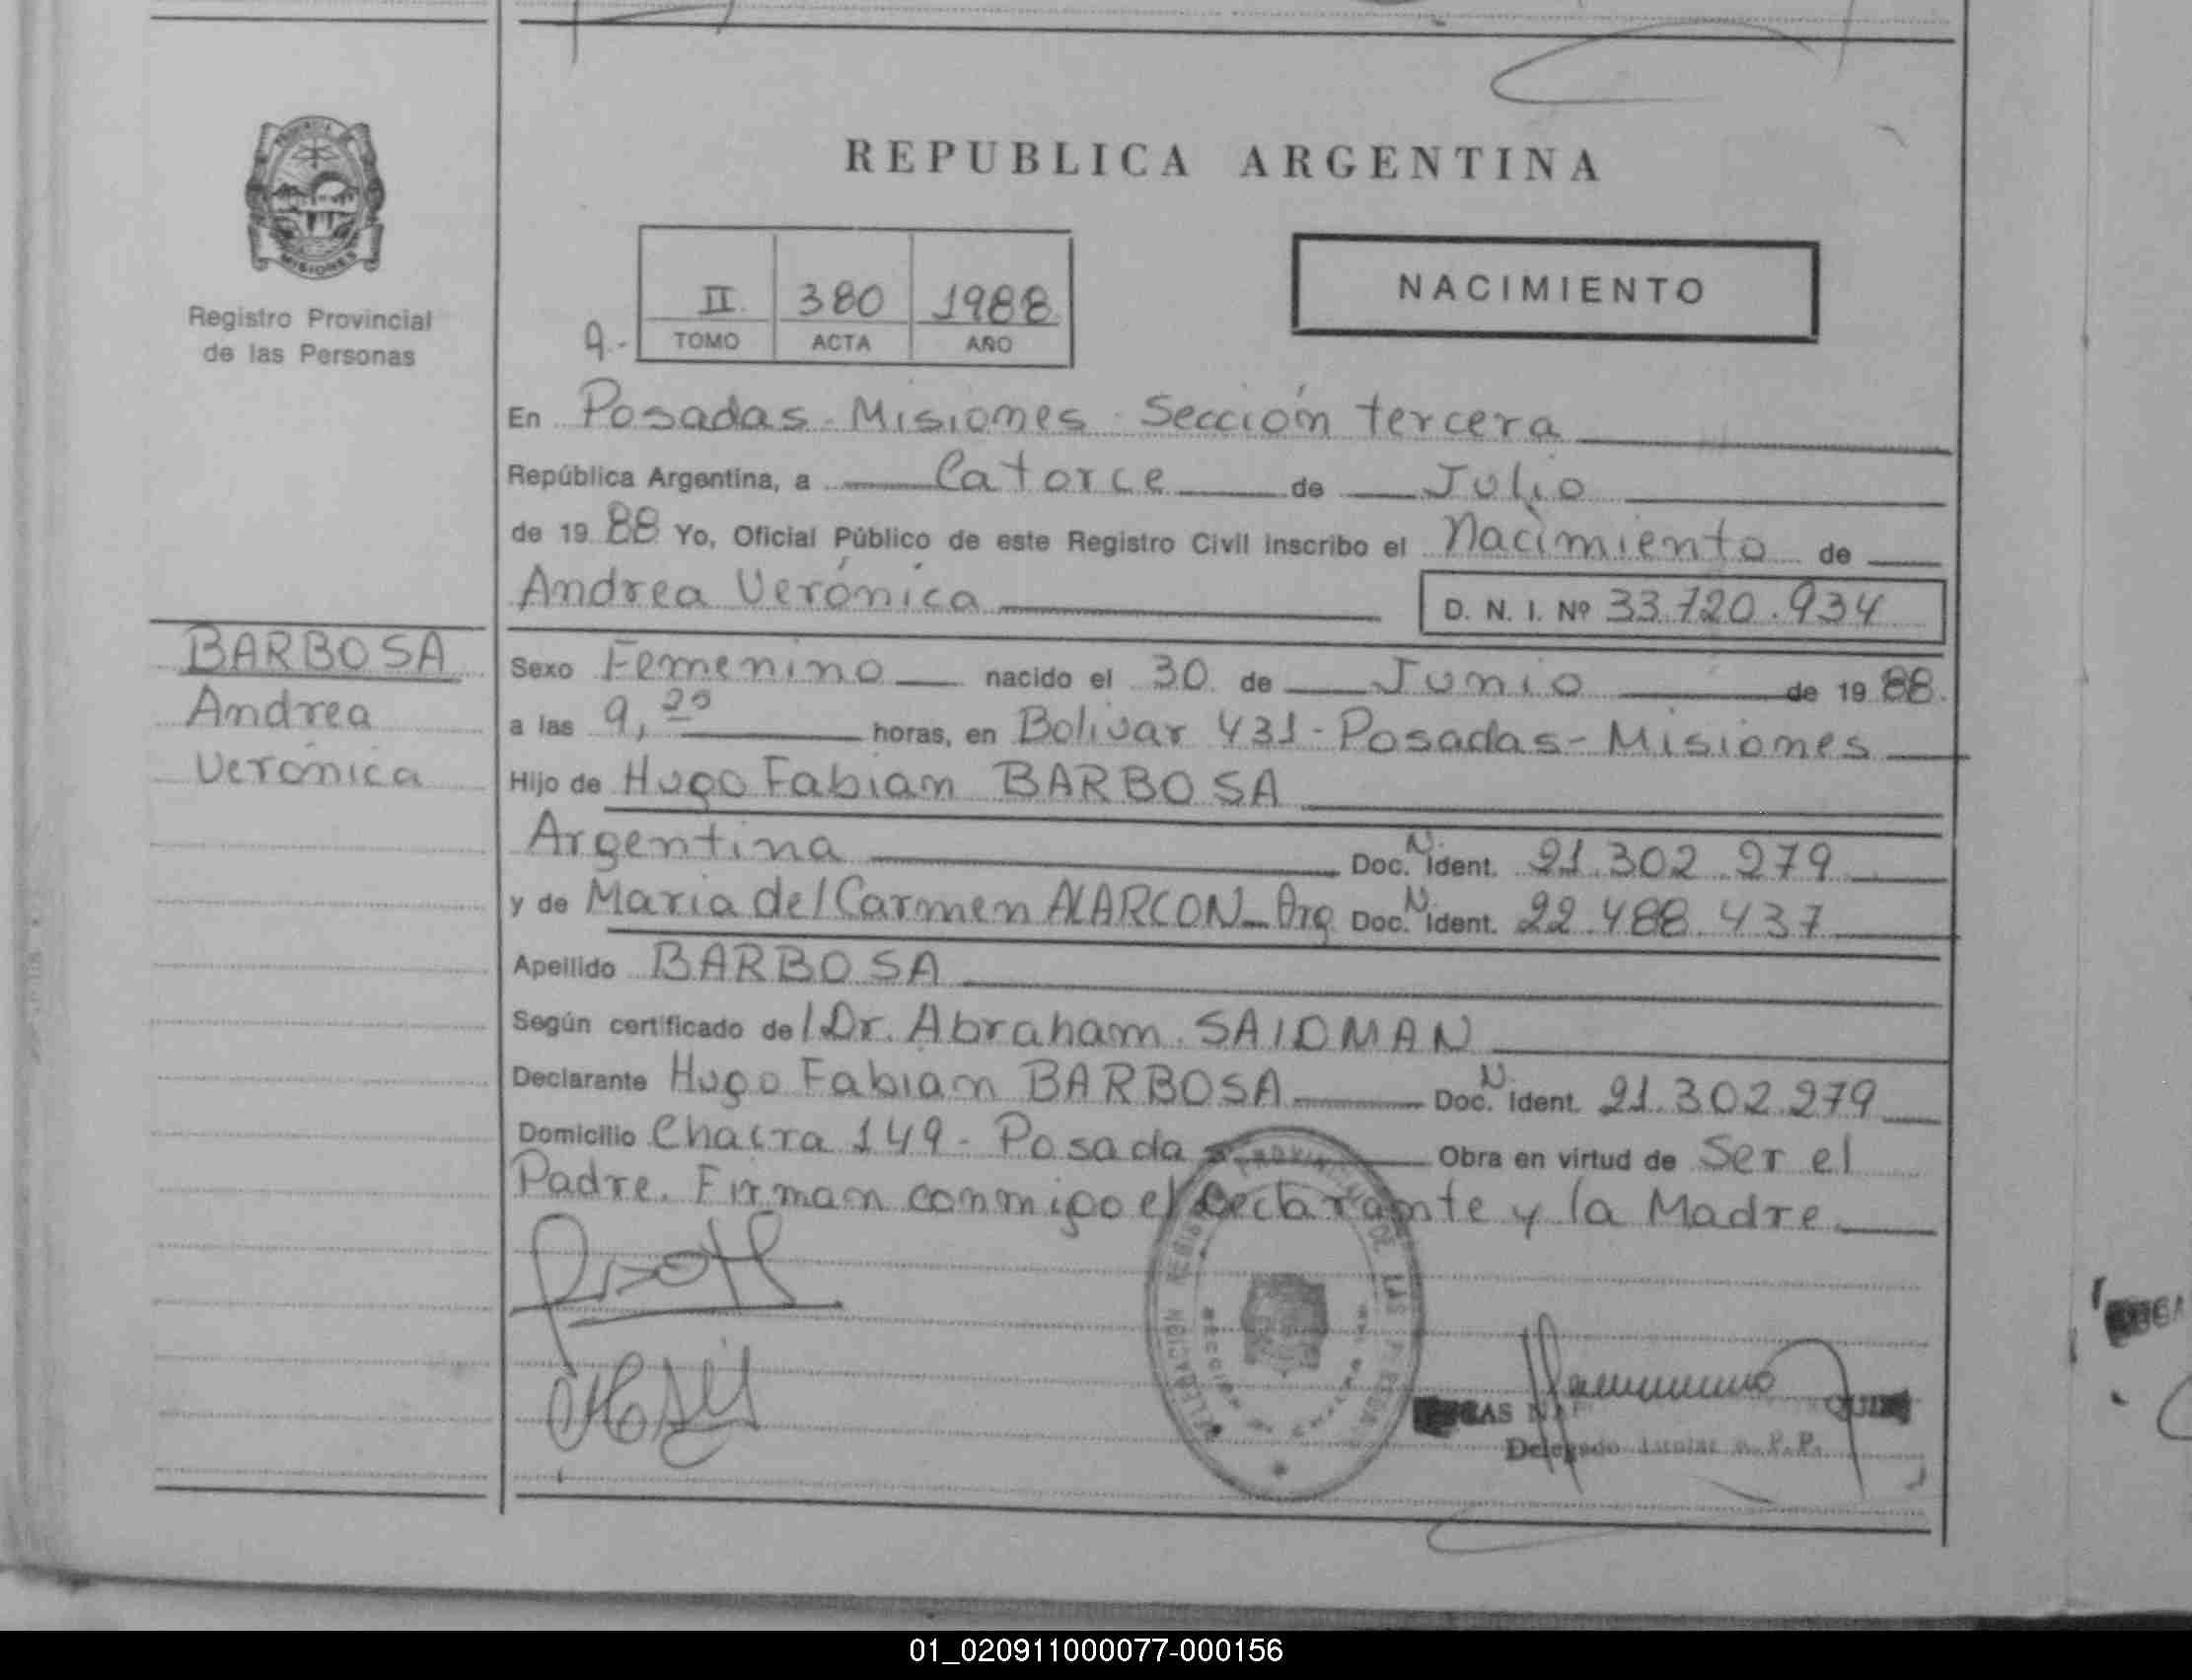 REPUBLICA ARGENTINA
MISIONES
Registro Provincial
de las Personas
II 380 1988
A.- TOMO ACTA AÑO
NACIMIENTO
En Posadas - Misiones - Sección tercera
República Argentina, a Catorce de Julio
de 19 88 Yo, Oficial Público de este Registro Civil inscribo el Nacimiento de
Andrea Verónica D. N. I. Nº 33.720.934
BARBOSA
Andrea
Verónica
Sexo Femenino nacido el 30 de Junio de 19 88.
a las 9,20 horas, en Bolivar 431 - Posadas - Misiones
Hijo de Hugo Fabian BARBOSA
Argentina Doc. N. ident. 21.302.279
y de Maria del Carmen ALARCON - Arg Doc. N ident. 22.488.437
Apellido BARBOSA
Según certificado del Dr. Abraham SAIDMAN
Declarante Hugo Fabian BARBOSA Doc. N ident. 21.302.279
Domicilio Chacra 149 - Posadas Obra en virtud de Ser el
Padre. Firman conmigo el Declarante y la Madre
DE LAS
DELEGACION
Delegado Titular R.P.P.
01_020911000077-000156